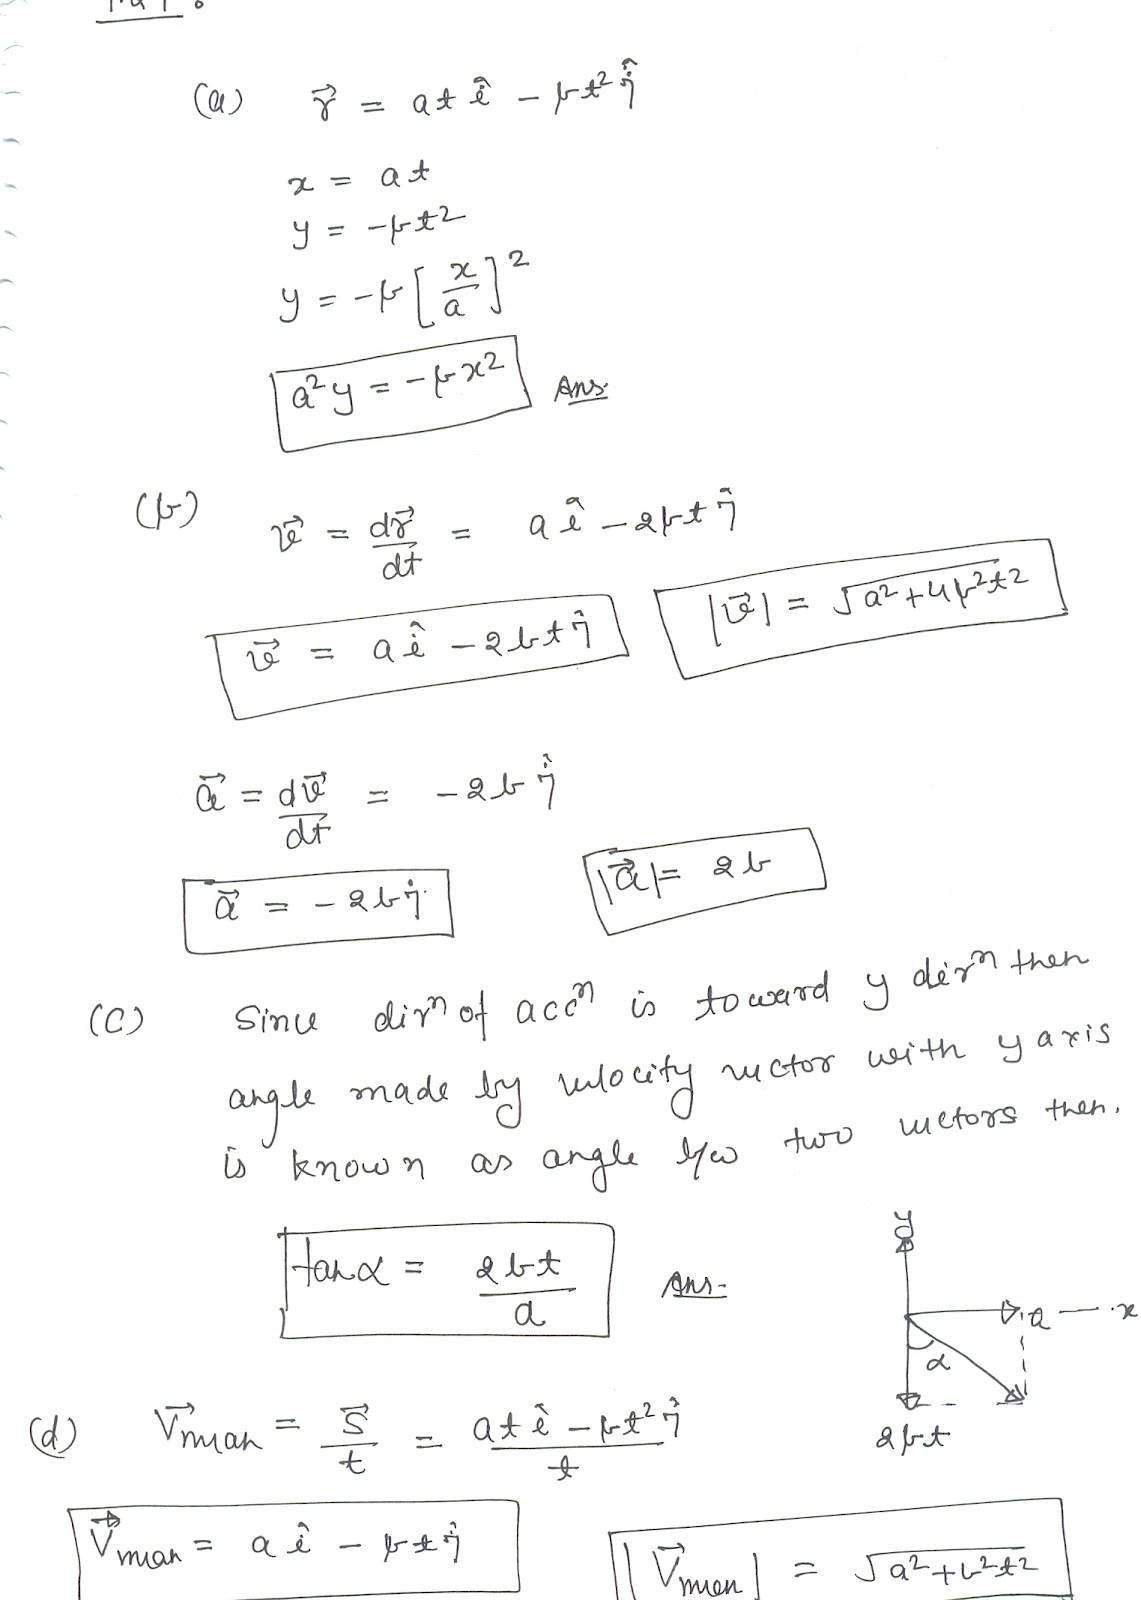 (a) r⃗ = at î − bt² ĵ
x = at
y = −bt²
y = −b[x/a]²
a²y = −bx² Ans.
(b) v⃗ = dr⃗/dt = a î − 2bt ĵ
v⃗ = a î − 2bt ĵ |v⃗| = √a²+4b²t²
a⃗ = dv⃗/dt = −2b ĵ
a⃗ = −2b ĵ |a⃗| = 2b
(c) Since dirⁿ of accⁿ is toward y dirⁿ then
angle made by velocity vector with y axis
is known as angle b/w two vectors then.
tanα = 2bt/a Ans-
y
a x
α
2bt
(d) V⃗mean = s⃗/t = at î − bt² ĵ/t
V⃗mean = a î − bt ĵ |V⃗mean| = √a²+b²t²